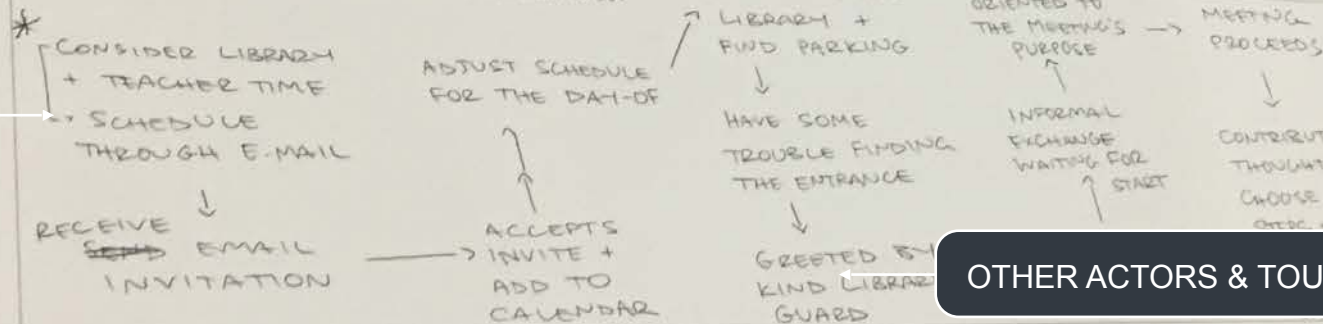 *
CONSIDER LIBRARY
+ TEACHER TIME
SCHEDULE
THROUGH E-MAIL
RECEIVE
EMAIL
INVITATION
ADJUST SCHEDULE
FOR THE DAY-OF
ACCEPTS
INVITE +
ADD TO
CALENDAR
LIBRARY +
FIND PARKING
HAVE SOME
TROUBLE FINDING
THE ENTRANCE
GREETED BY
KIND LIBRAR
GUARD
ORIENTED TO
THE MEETING'S
PURPOSE
INFORMAL
EXCHANGE
WAITING FOR
START
MEETING
PROCEEDS
CONTRIBUT
THOUGHT
CHOOSE
OTHER ACTORS & TOU